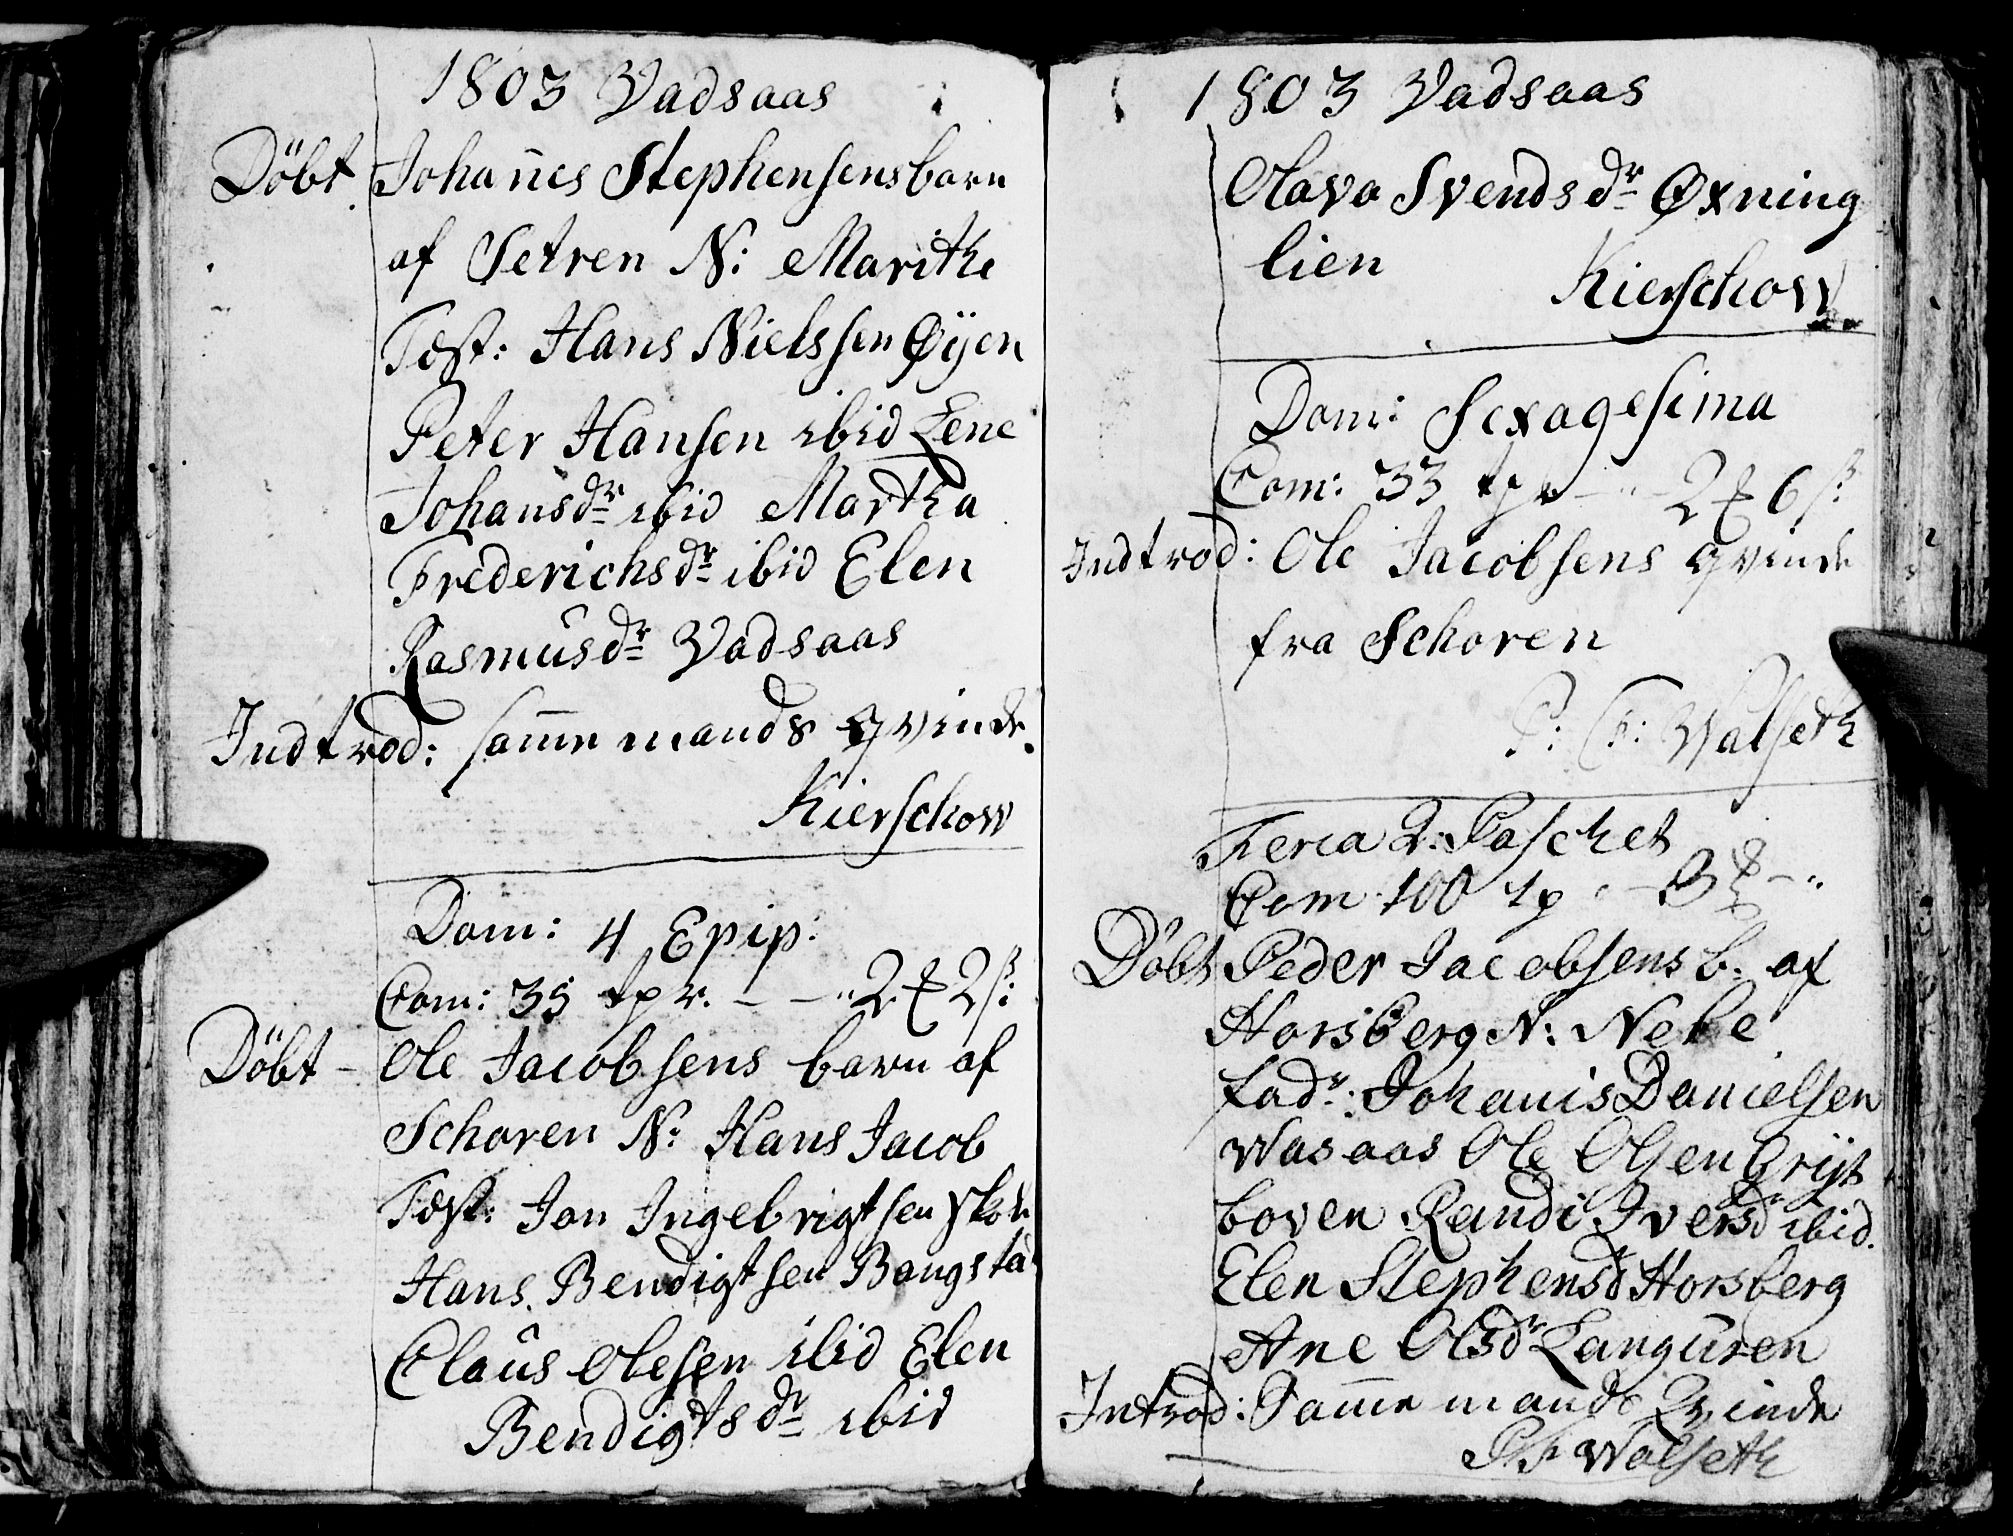 1803 Vadsaas
Döbt Johañes Stephensens barn
af Setren N: Marithe
Test: Hans Nielssen Øÿen
Peter Hansen ibid Lene
Johansdr ibid Martha
Frederichsdr ibid Elen
Rasmusdr Vadsaas
Indtrod: sam̄e mands qvinde.
Kierschow
Dom: 4 Epip:
Com: 35 tpr. - - " 2 2
Döbt - Ole Jacobsens barn af
Schoren N: Hans Jacob
Test: Jon Ingebrigtsen
Hans Bendigtsen Bangsta
Claus Olesen ibid Elen
Bendigtsdr ibid
1803 Vadsaas
Olava Svendsdr Øxning
lien
Kierschow
Dom: Sexagesima
Com: 33 tpr - " - 2 6
Indtrod: Ole Jacobsens qvinde
fra Schoren
P: Walseth
Feria 2: Paschet
Com 100 tp - 3 - "
Döbt Peder Jacobsens b. af
Horsberg N: Nebe
fadr: Johanis Danielsen
Wasaas Ole Olsen Grÿt
boven Randi Iversd ibid.
Elen Stephensd Horsberg
Ane Olsdr Langüren
Introd: Sam̄e mands Qvinde
Walseth